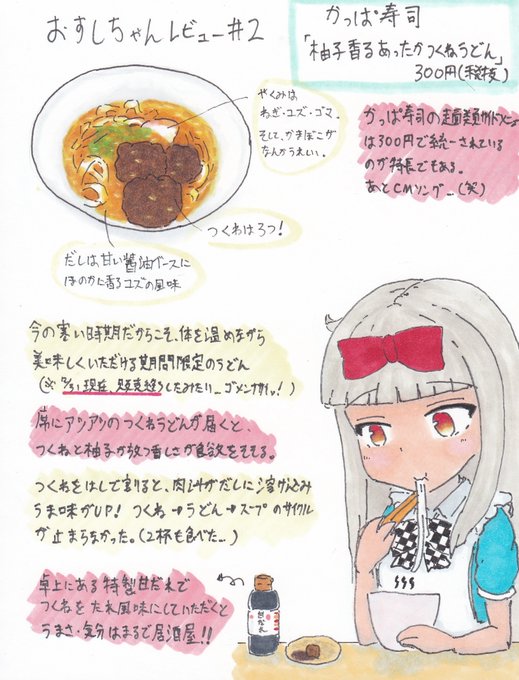 おすしちゃんレビュー#2
かっぱ寿司
「柚子香るあったかつくねうどん」
300円(税抜)
やくみは
ねぎ・ユズ・ゴマ
そして、かまぼこが
なんかうれしい。
かっぱ寿司の麺類サイドメニュー
は300円で統一されている
のが特長でもある。
あとCMソング…(笑)
つくねは3つ!
だしは甘い醤油ベースに
ほのかに香るユズの風味
今の寒い時期だからこそ、体を温めながら
美味しくいただける期間限定のうどん
現在
したみたい…ゴメンナサイッ!)
席にアツアツのつくねうどんが届くと、
つくねと柚子が放つ香しさが食欲をそそる。
つくねをはしで割ると、肉汁がだしに溶け込み
うま味がUP! つくね→うどん→スープのサイクル
が止まらなかった。(2杯も食べた…)
卓上にある特製甘だれで
つくねをたれ風味にしていただくと
うまさ・気分はまるで居酒屋!!
甘だれ